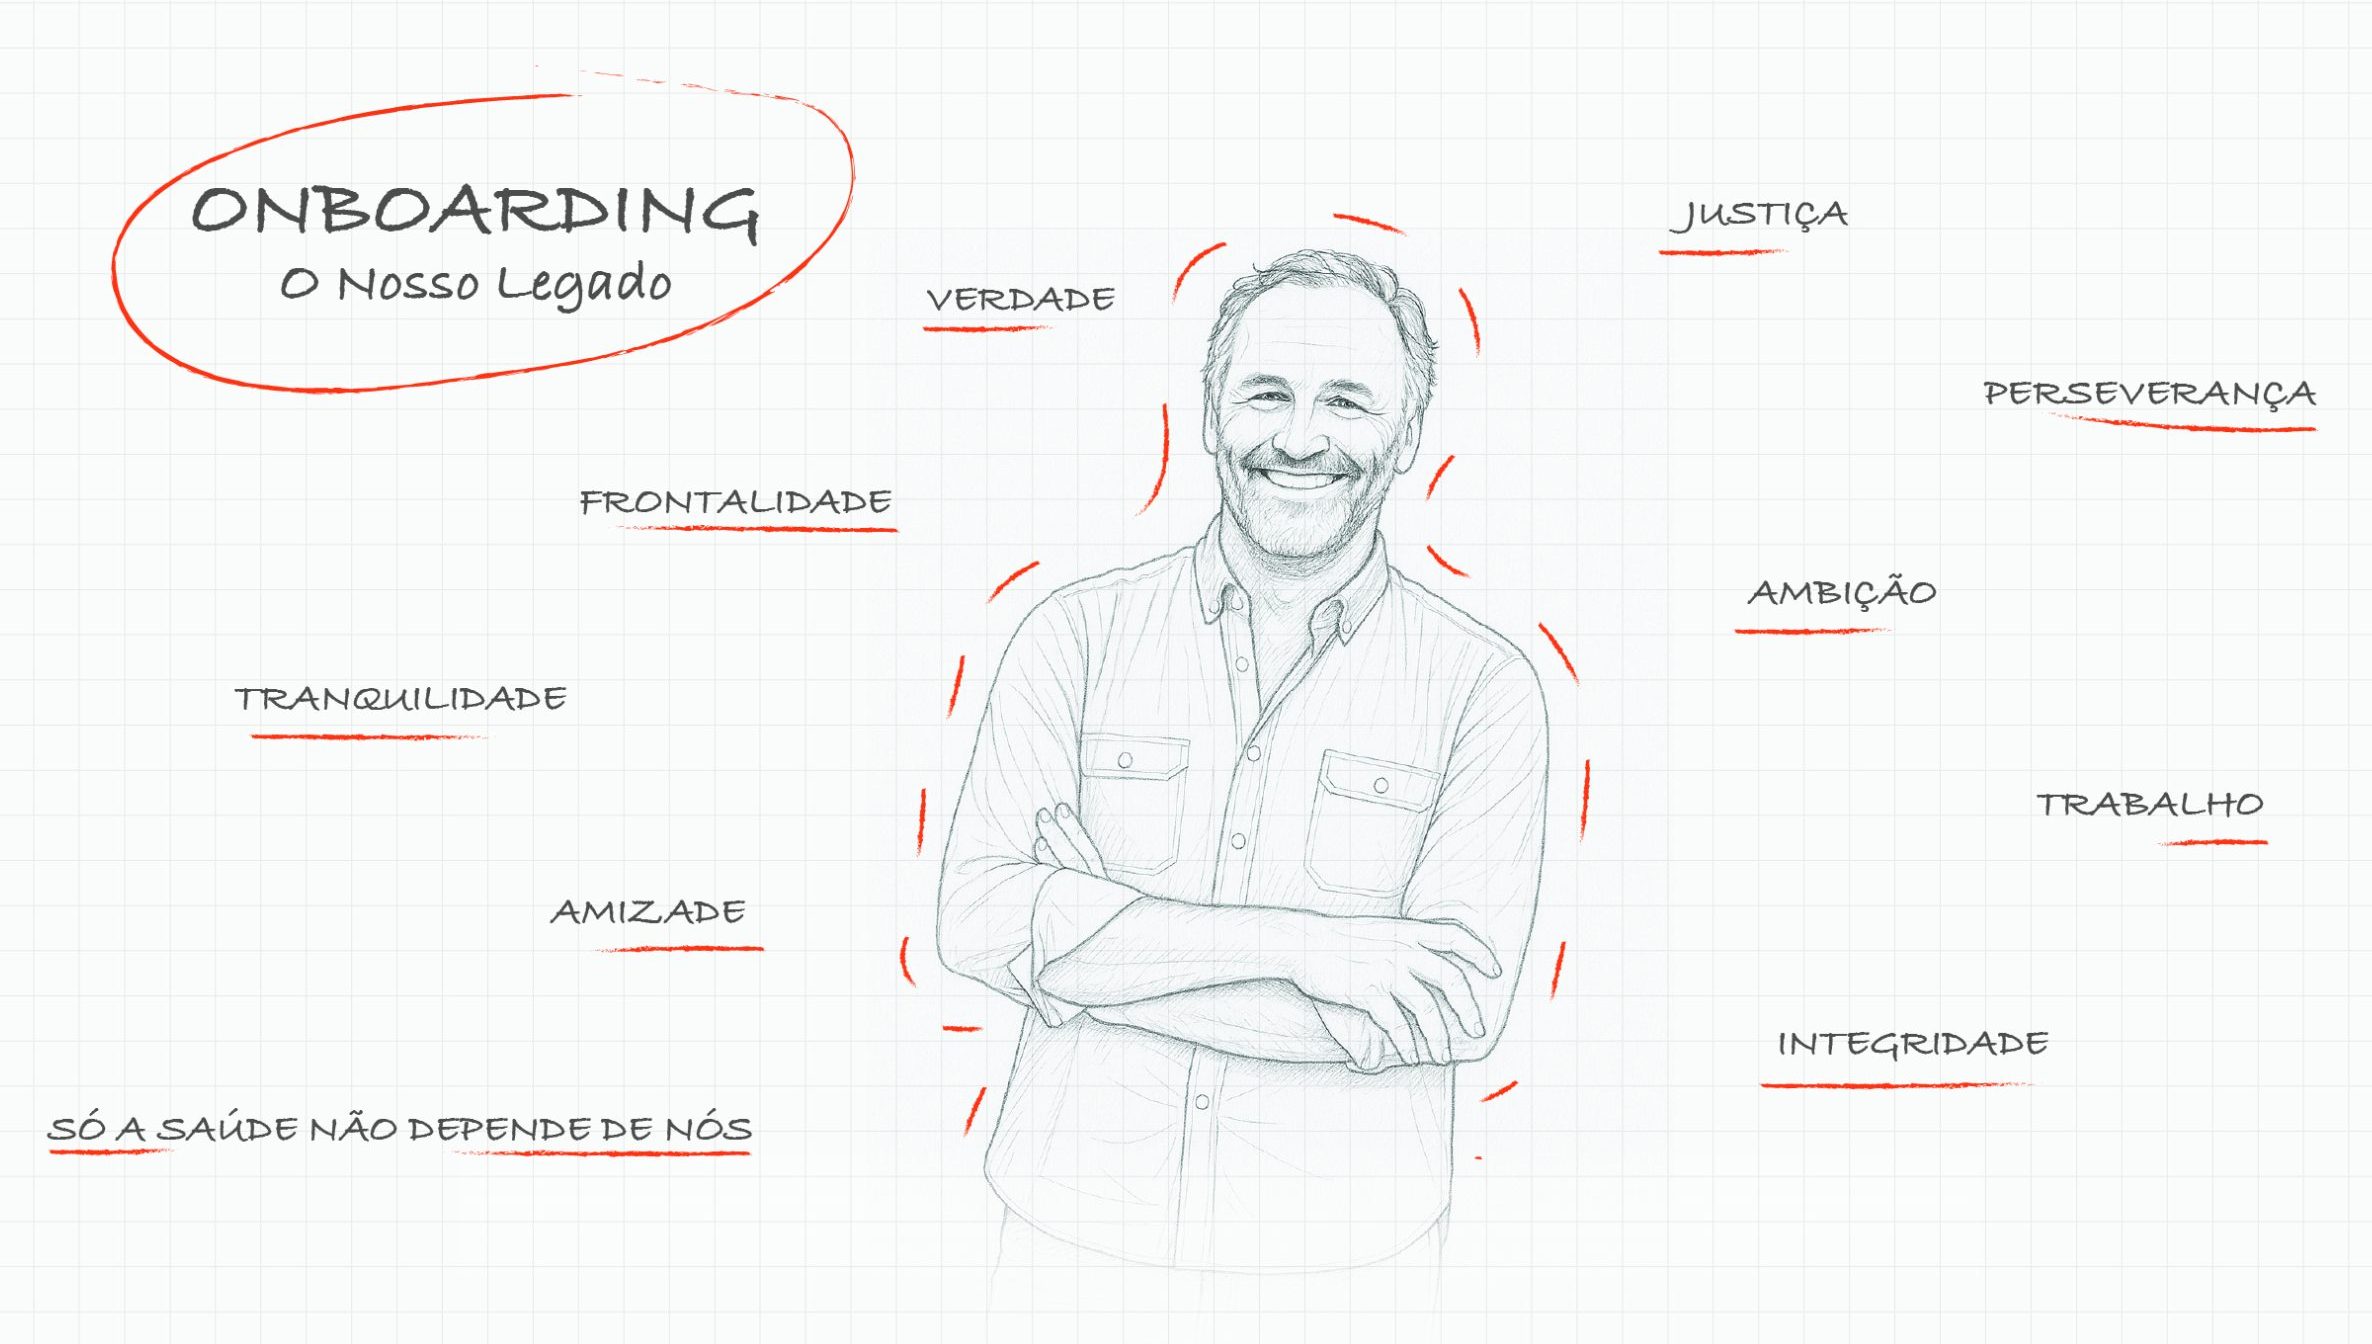 ONBOARDING
O Nosso Legado
VERDADE
FRONTALIDADE
TRANQUILIDADE
AMIZADE
SÓ A SAÚDE NÃO DEPENDE DE NÓS
JUSTIÇA
PERSEVERANÇA
AMBIÇÃO
TRABALHO
INTEGRIDADE